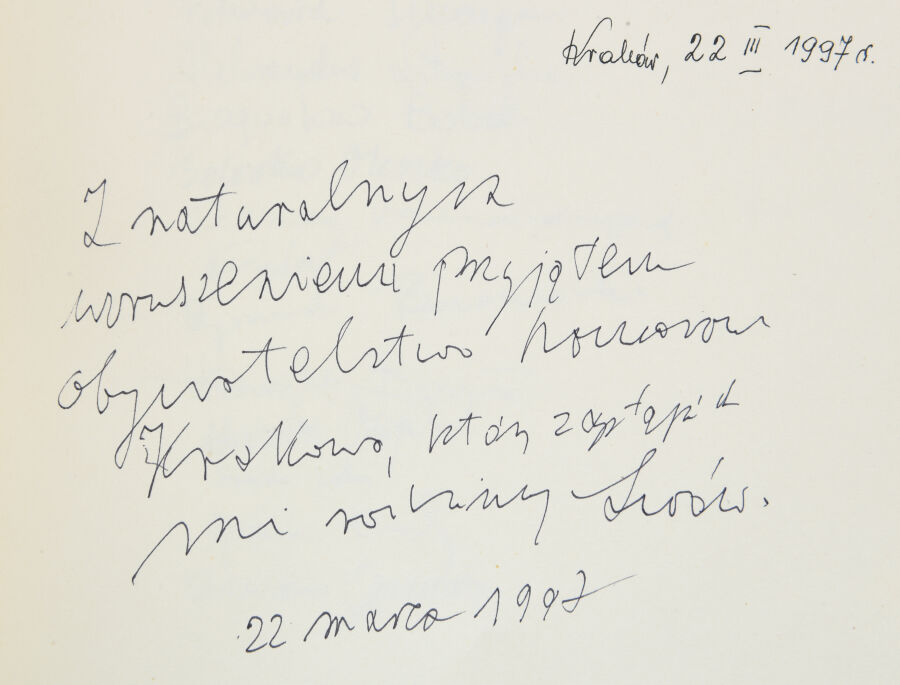 Kraków, 22 III 1997 r.
Z naturalnym
wzruszeniem przyjąłem
obywatelstwo honorowe
Krakowa, który zastąpił
mi rodzinny Lwów.
22 marca 1997